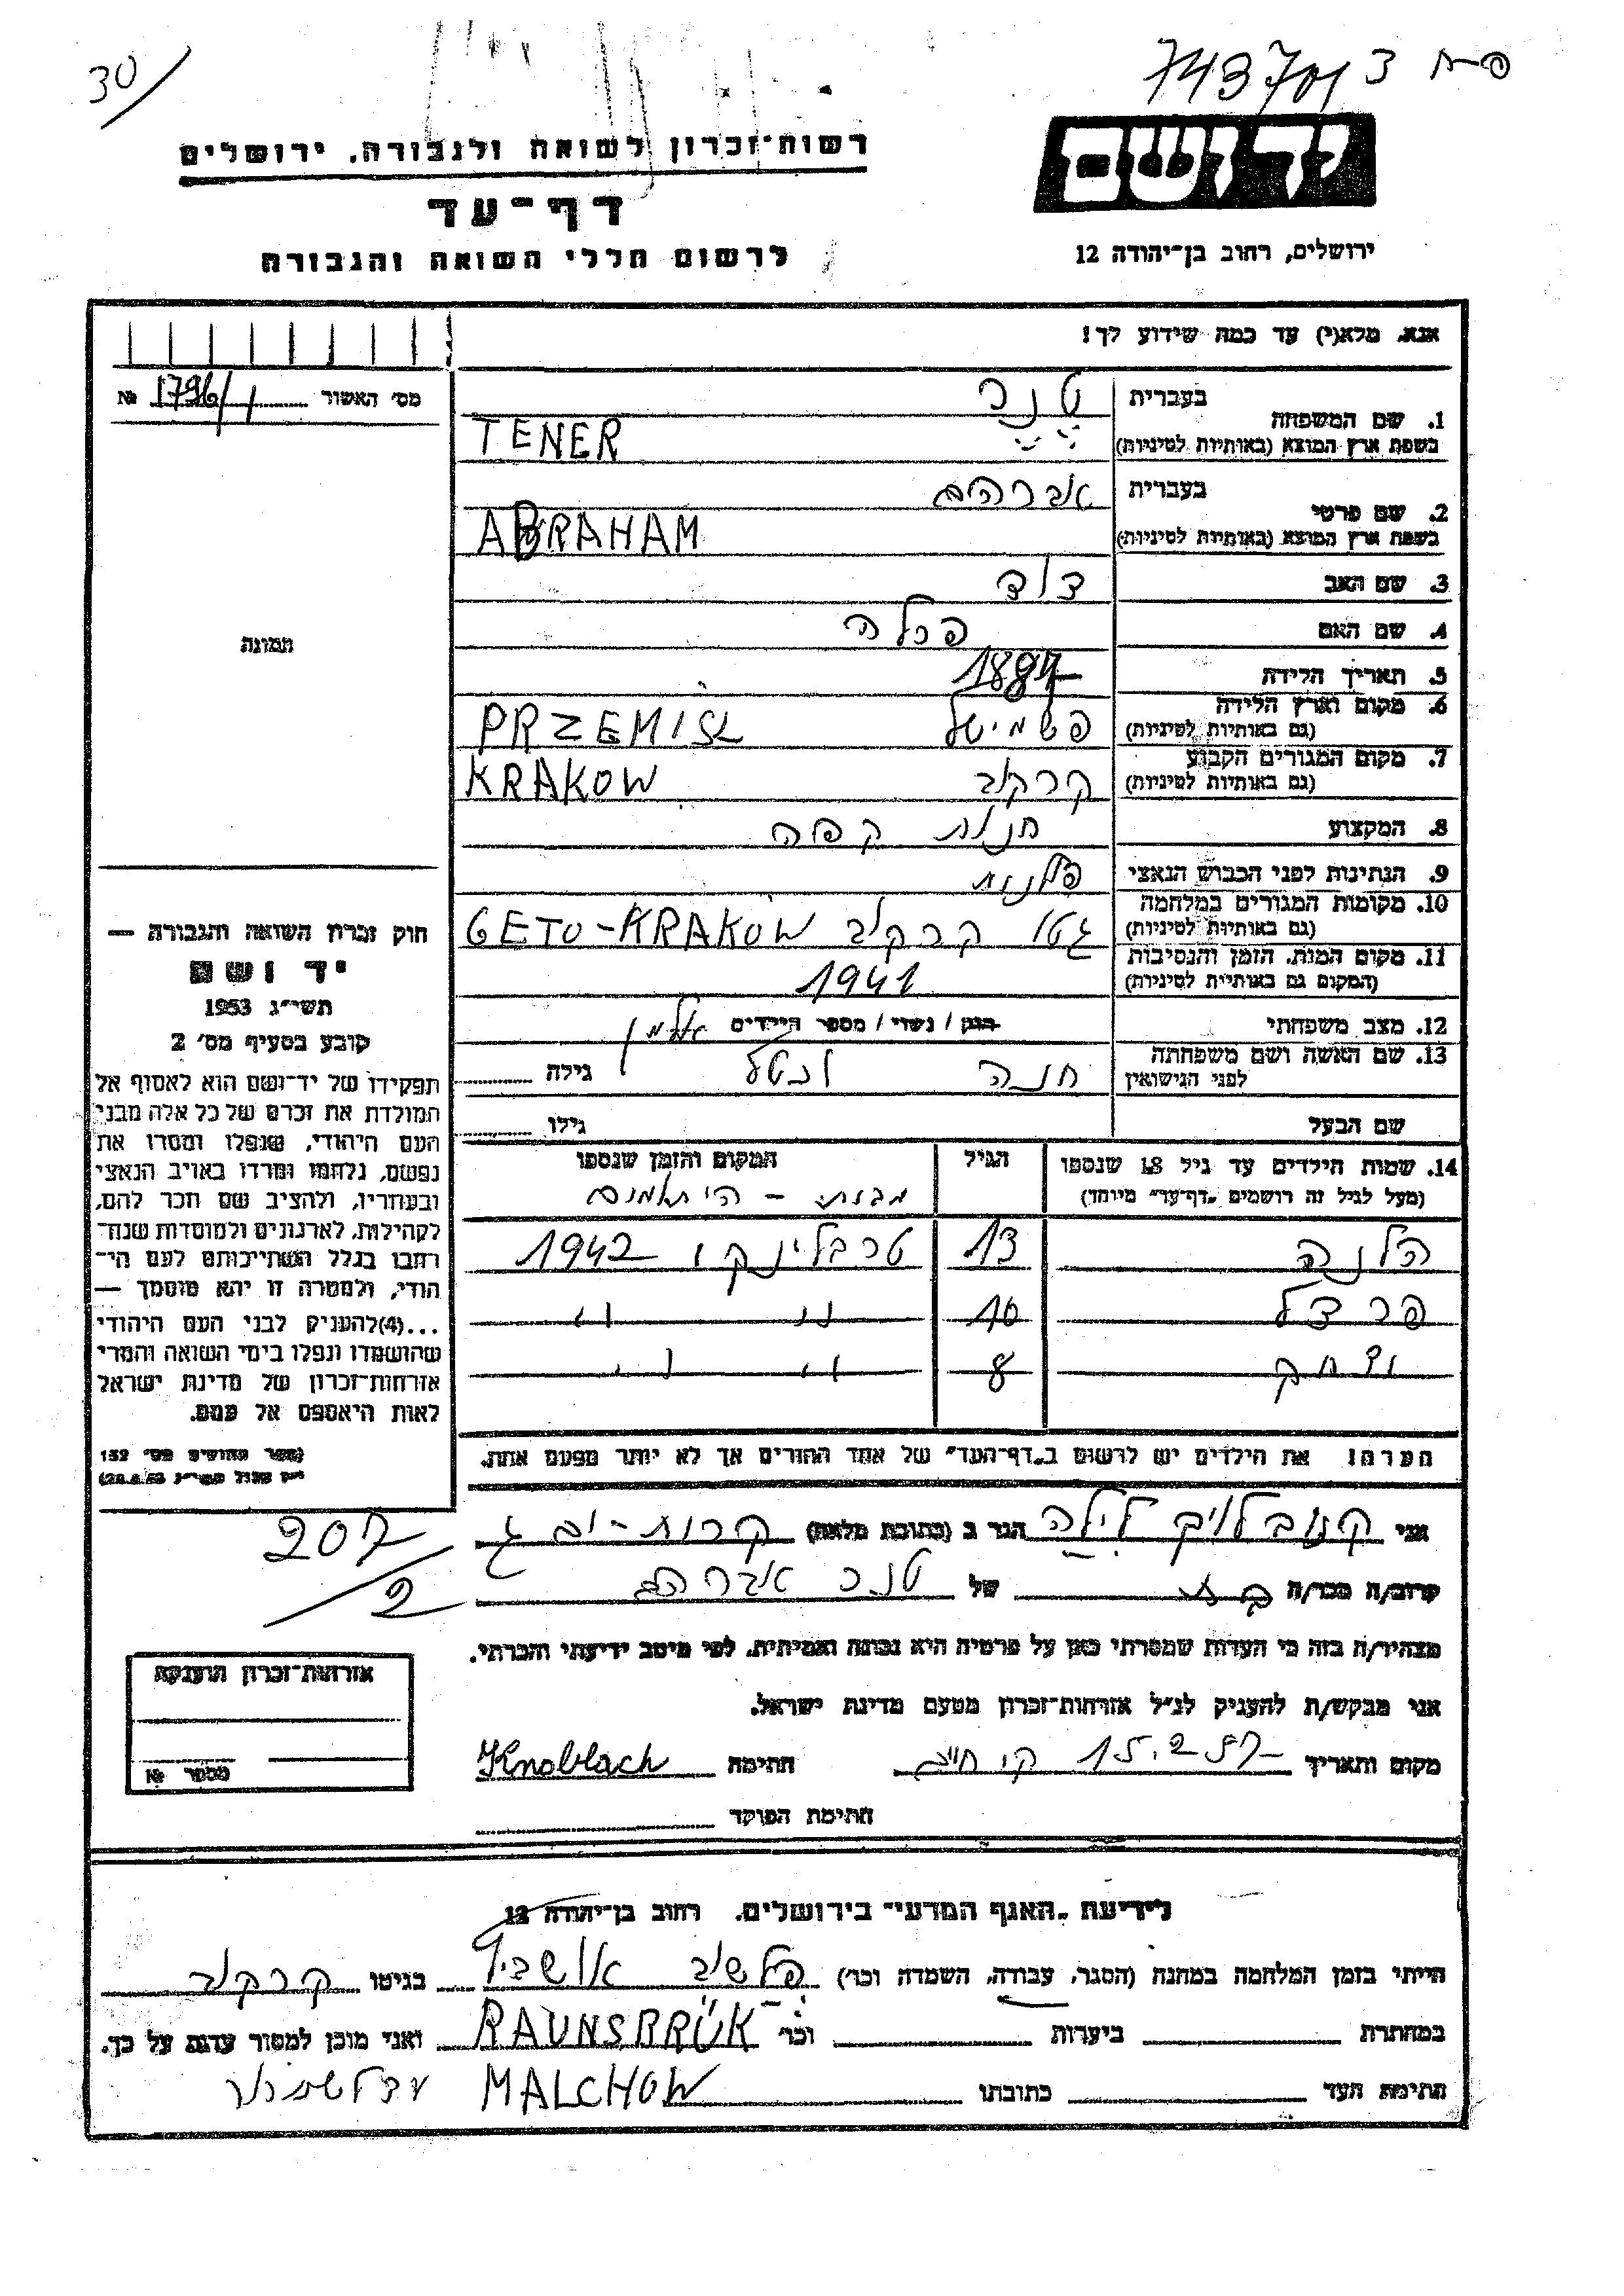 30/
743701 3 ח-פ
יד ושם
רשות-זכרון לשואה ולגבורה, ירושלים
דף-עד
לרשום חללי השואה והגבורה
ירושלים, רחוב בן-יהודה 12
אנא, מלא(י) עד כמה שידוע לך!
מס' האשור 1796/1 №
תמונה
1. שם המשפחה
בעברית טנר
בשפת ארץ המוצא (באותיות לטיניות) TENER
2. שם פרטי
בעברית אברהם
בשפת ארץ המוצא (באותיות לטיניות) ABRAHAM
3. שם האב דוד
4. שם האם פרלה
5. תאריך הלידה
6. מקום וארץ הלידה
(גם באותיות לטיניות) פשמישל PRZEMISL
7. מקום המגורים הקבוע
(גם באותיות לטיניות) קרקוב KRAKOW
8. המקצוע חנות קפה
9. הנתינות לפני הכבוש הנאצי פולנית
10. מקומות המגורים במלחמה
(גם באותיות לטיניות) גטו קרקוב GETO-KRAKOW
11. מקום המות, הזמן והנסיבות
(המקום גם באותיות לטיניות) 1941
12. מצב משפחתי רווק / נשוי / מספר הילדים אלמן
13. שם האשה ושם משפחתה
לפני הנישואין חנה גילה
שם הבעל גילו
14. שמות הילדים עד גיל 18 שנספו הגיל המקום והזמן שנספו
(מעל לגיל זה רושמים "דף-עד" מיוחד)
הלנה 13 טרבלינקי 1942
פרדל 10 " "
יצחק 8 " "
הערה! את הילדים יש לרשום ב"דף-העד" של אחד ההורים אך לא יותר מפעם אחת.
חוק זכרון השואה והגבורה —
יד ושם
תשי"ג 1953
קובע בסעיף מס' 2
תפקידו של יד-ושם הוא לאסוף אל
המולדת את זכרם של כל אלה מבני
העם היהודי, שנפלו ומסרו את
נפשם, נלחמו ומרדו באויב הנאצי
ובעוזריו, ולהציב שם וזכר להם,
לקהילות, לארגונים ולמוסדות שנח-
רבו בגלל השתייכותם לעם הי-
הודי, ולמטרה זו יהא מוסמך —
...(4)להעניק לבני העם היהודי
שהושמדו ונפלו בימי השואה והמרי
אזרחות-זכרון של מדינת ישראל
לאות היאספם אל עמם.
(ספר החוקים מס' 132
207/2
אני לילה הגר ב (כתובת מלאה) קרית-ים ג
קרוב/ה מכר/ה בת של טנר אברהם
מצהיר/ה בזה כי העדות שמסרתי כאן על פרטיה היא נכונה ואמיתית, לפי מיטב ידיעתי והכרתי.
אני מבקש/ת להעניק לנ"ל אזרחות-זכרון מטעם מדינת ישראל.
מקום ותאריך 15.2.57 חתימה Knoblach
חתימת הפוקד
אזרחות-זכרון הוענקה
מספר №
לידיעת "האגף המדעי" בירושלים, רחוב בן-יהודה 12
הייתי בזמן המלחמה במחנה (הסגר, עבודה, השמדה וכו') פלשוב אושביץ בגיטו קרקוב
במחתרת ביערות וכו' RAUNSBRÜK ואני מוכן למסור עדות על כך.
חתימת העד כתובתו MALCHOW